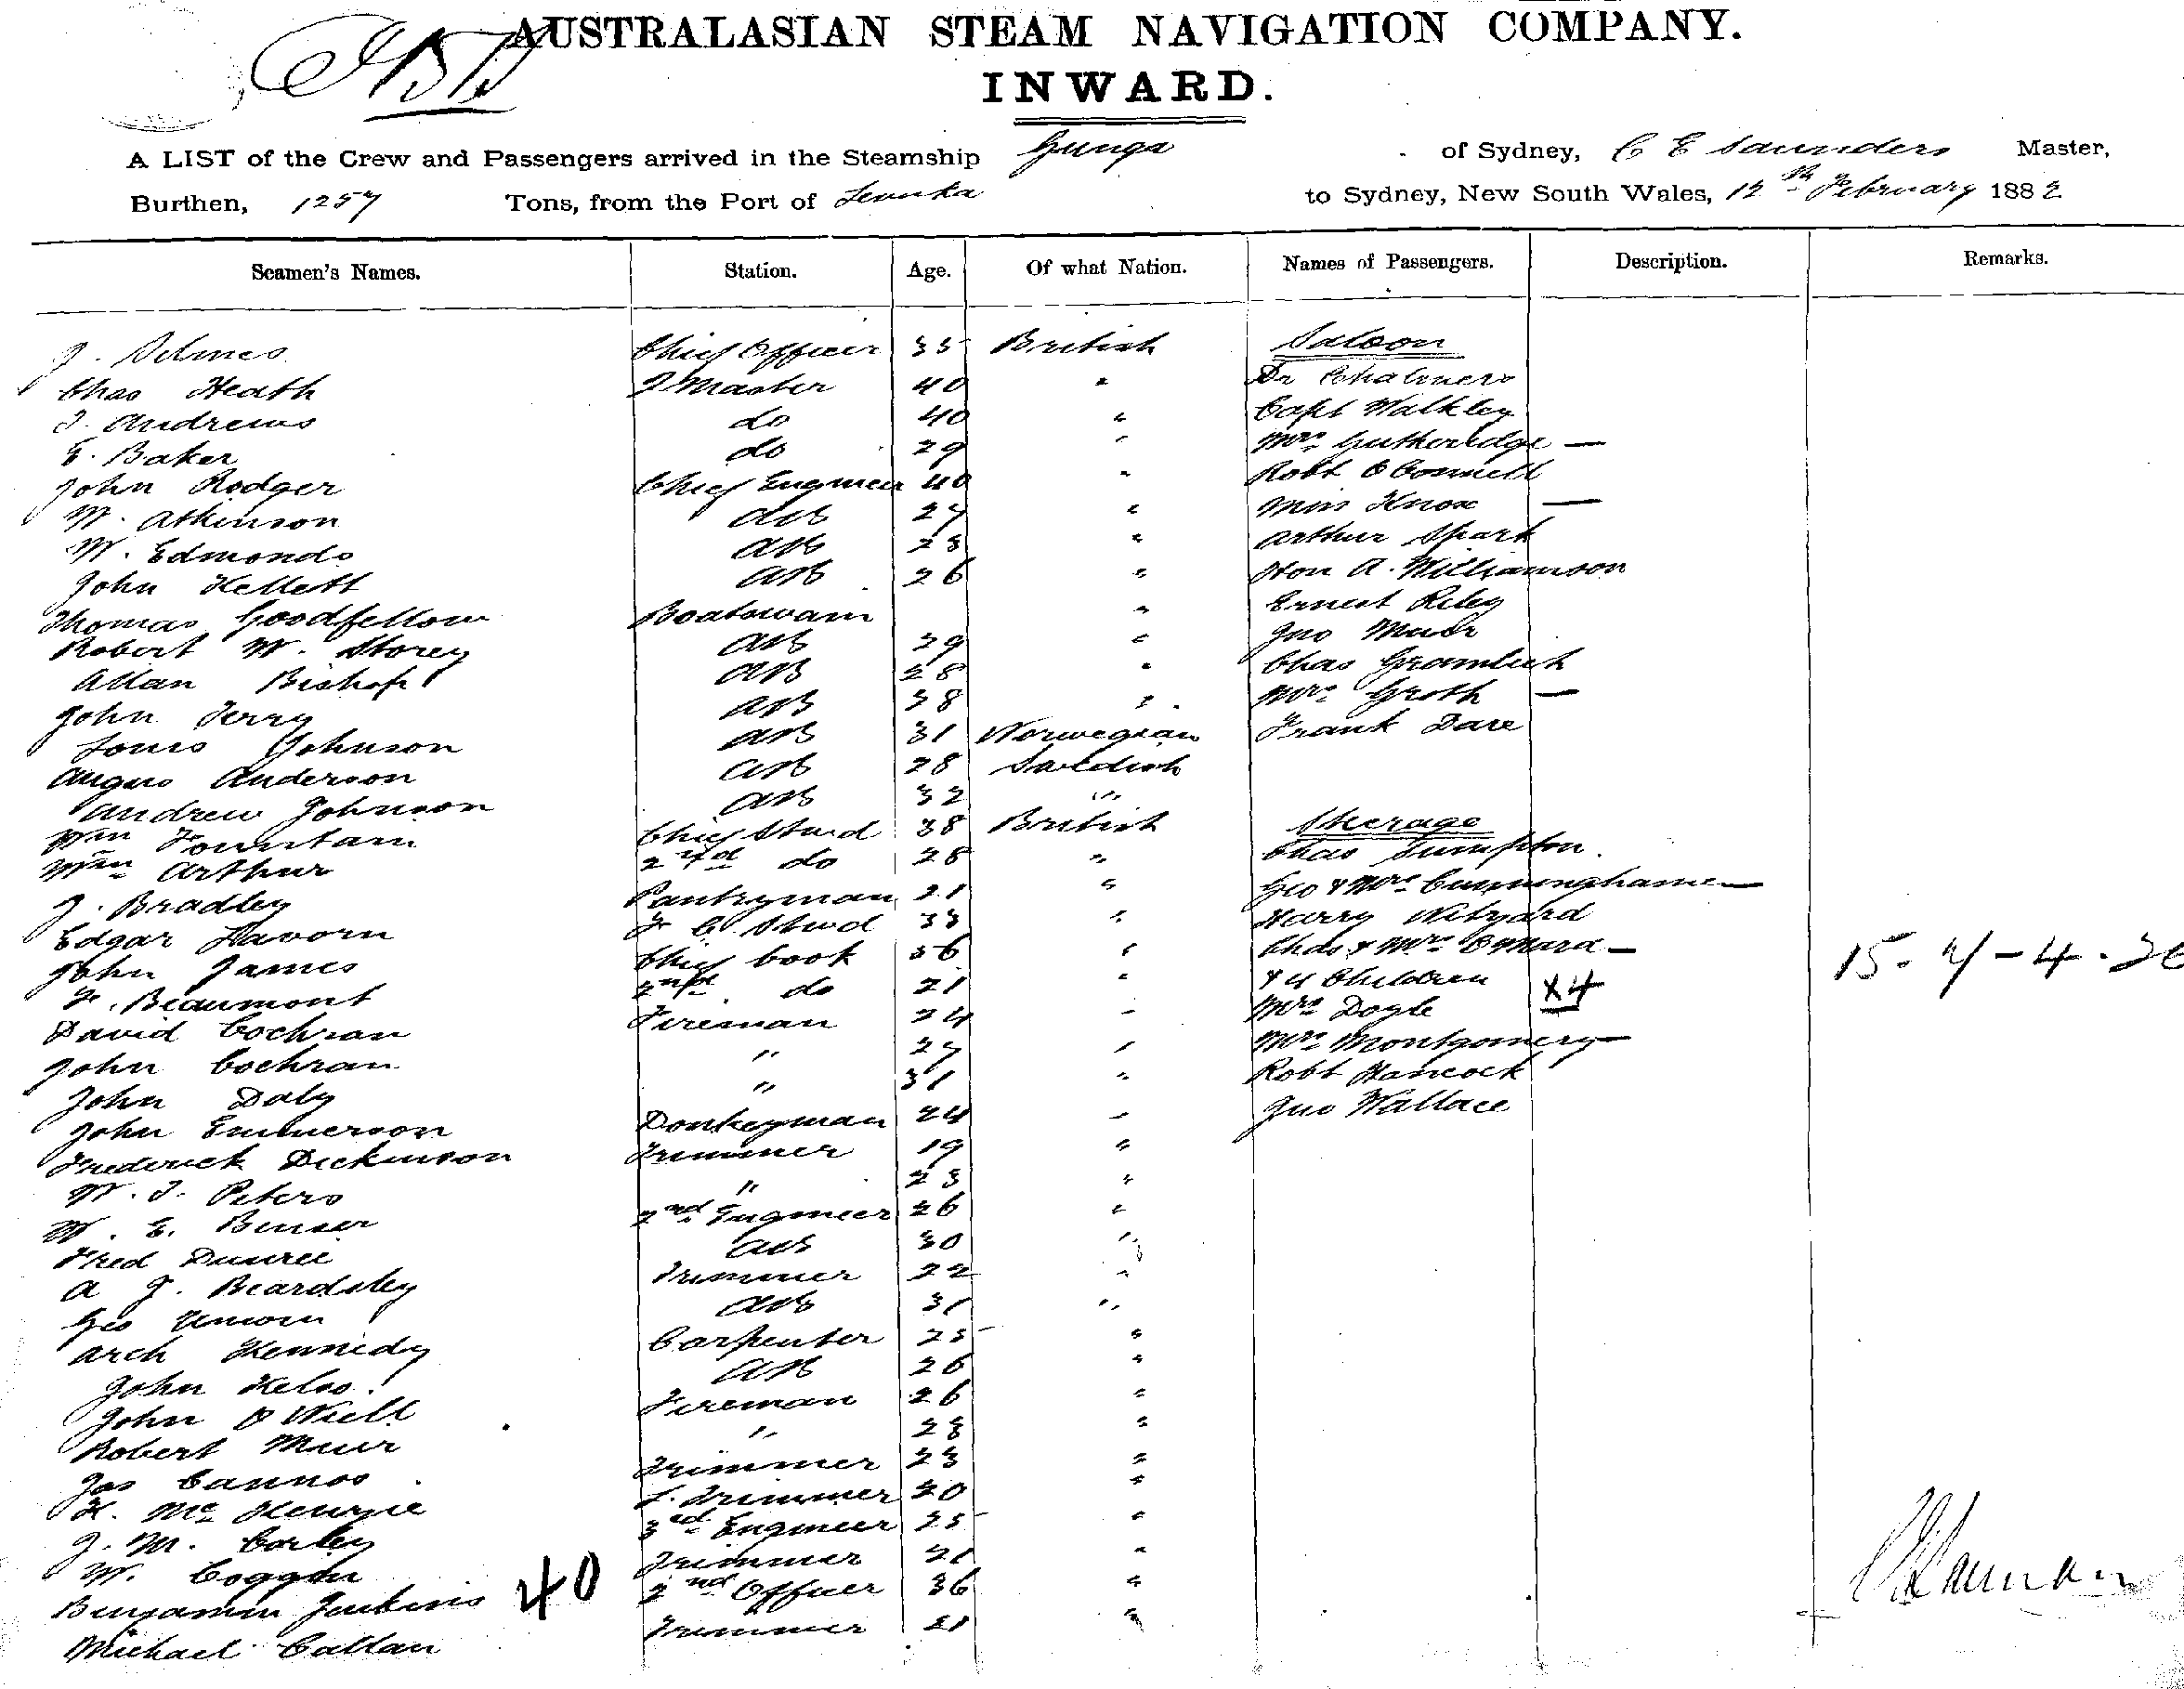 AUSTRALASIAN STEAM NAVIGATION COMPANY.
INWARD.
A LIST of the Crew and Passengers arrived in the Steamship Gunga of Sydney, C E Saunders Master,
Burthen, 1257 Tons, from the Port of Levuka to Sydney, New South Wales, 12th February 1882
Seamen's Names. Station. Age. Of what Nation. Names of Passengers. Description. Remarks.
J. Chief Officer 35 British Saloon
Chas Heath 2 Master 40 " Dr Chalmers
J. Andrews do 40 " Capt Walkley
E. Baker do 29 " Mrs Gutheridge —
John Rodger Chief Engineer 40 " Robt O Connell
W. Atkinson 27 " Miss Knox —
W. Edmonds AB 23 " Arthur Shark
John Kellett AB 26 " Hon A. Williamson
Thomas Goodfellow Boatswain " Ernest Riley
Robert W. Storey AB 29 " Jno Muir
Allan Bishop AB 28 " Chas Gramlich
John Terry AB 38 " Mrs Groth —
Louis Johnson AB 31 Norwegian Frank Dare
Angus Anderson AB 28 Swedish
Andrew Johnson AB 32 "
Wm Fountain Chief Stwd 38 British Sterage
Wm Arthur 2nd do 28 " Chas Sumpton
J. Bradley Pantryman 21 " Geo & Mrs Cunninghame —
Edgar Davorn F C Stwd 33 " Harry Wityard
John James Chief Cook 36 " Chas & Mrs O'Mara — 15. 4 - 4.
F. Beaumont 2nd do 21 " & 4 Children x4
David Cochran Fireman 24 " Mrs Doyle
John Cochran " 27 " Mrs Montgomery —
John Daly " 31 " Robt Hancock
John Emmerson Donkeyman 24 " Jno Wallace
Frederick Dickinson Trimmer 19 "
W. J. Peters " 23 "
W. E. 2nd Engineer 26 "
Fred AB 30 "
A J. Beardsley Trimmer 22 "
Geo AB 31 "
Arch Kennedy Carpenter 25 "
John Kelso AB 26 "
John O Niell Fireman 26 "
Robert Muir " 28 "
Jas Trimmer 23 "
Mc Trimmer 20 "
J. M. Corley 3rd Engineer 25 "
W. Trimmer 21 "
Benjamin Jenkins 40 2nd Officer 36 "
Michael Callan Trimmer 21 "